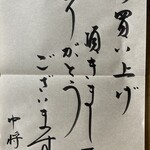 買い上げ
頂きまし
りがとう
ございます
中将